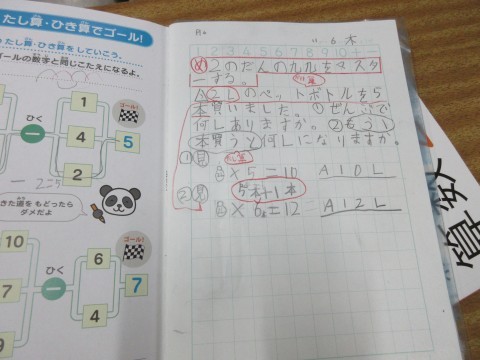 たし算・ひき算でゴール!
たし算・ひき算をしていこう。
ゴールの数字と同じこたえになるよ。
1
ゴール!
ひく
5
4
きた道をもどったら
ダメだよ
10
ゴール!
6
ひく
7
7
4
11 6 木
1 2 3 4 5 6 7 8 9 10 + −
め 2のだんの九九をマスタ
ーする。
2Lのペットボトルを5
本買いました。①ぜんぶで
何Lありますか。②もう1
本買うと何Lになりますか。
① 式
2×5=10 A10L
5本+1本
② 式
2×6=12 A12L
算数